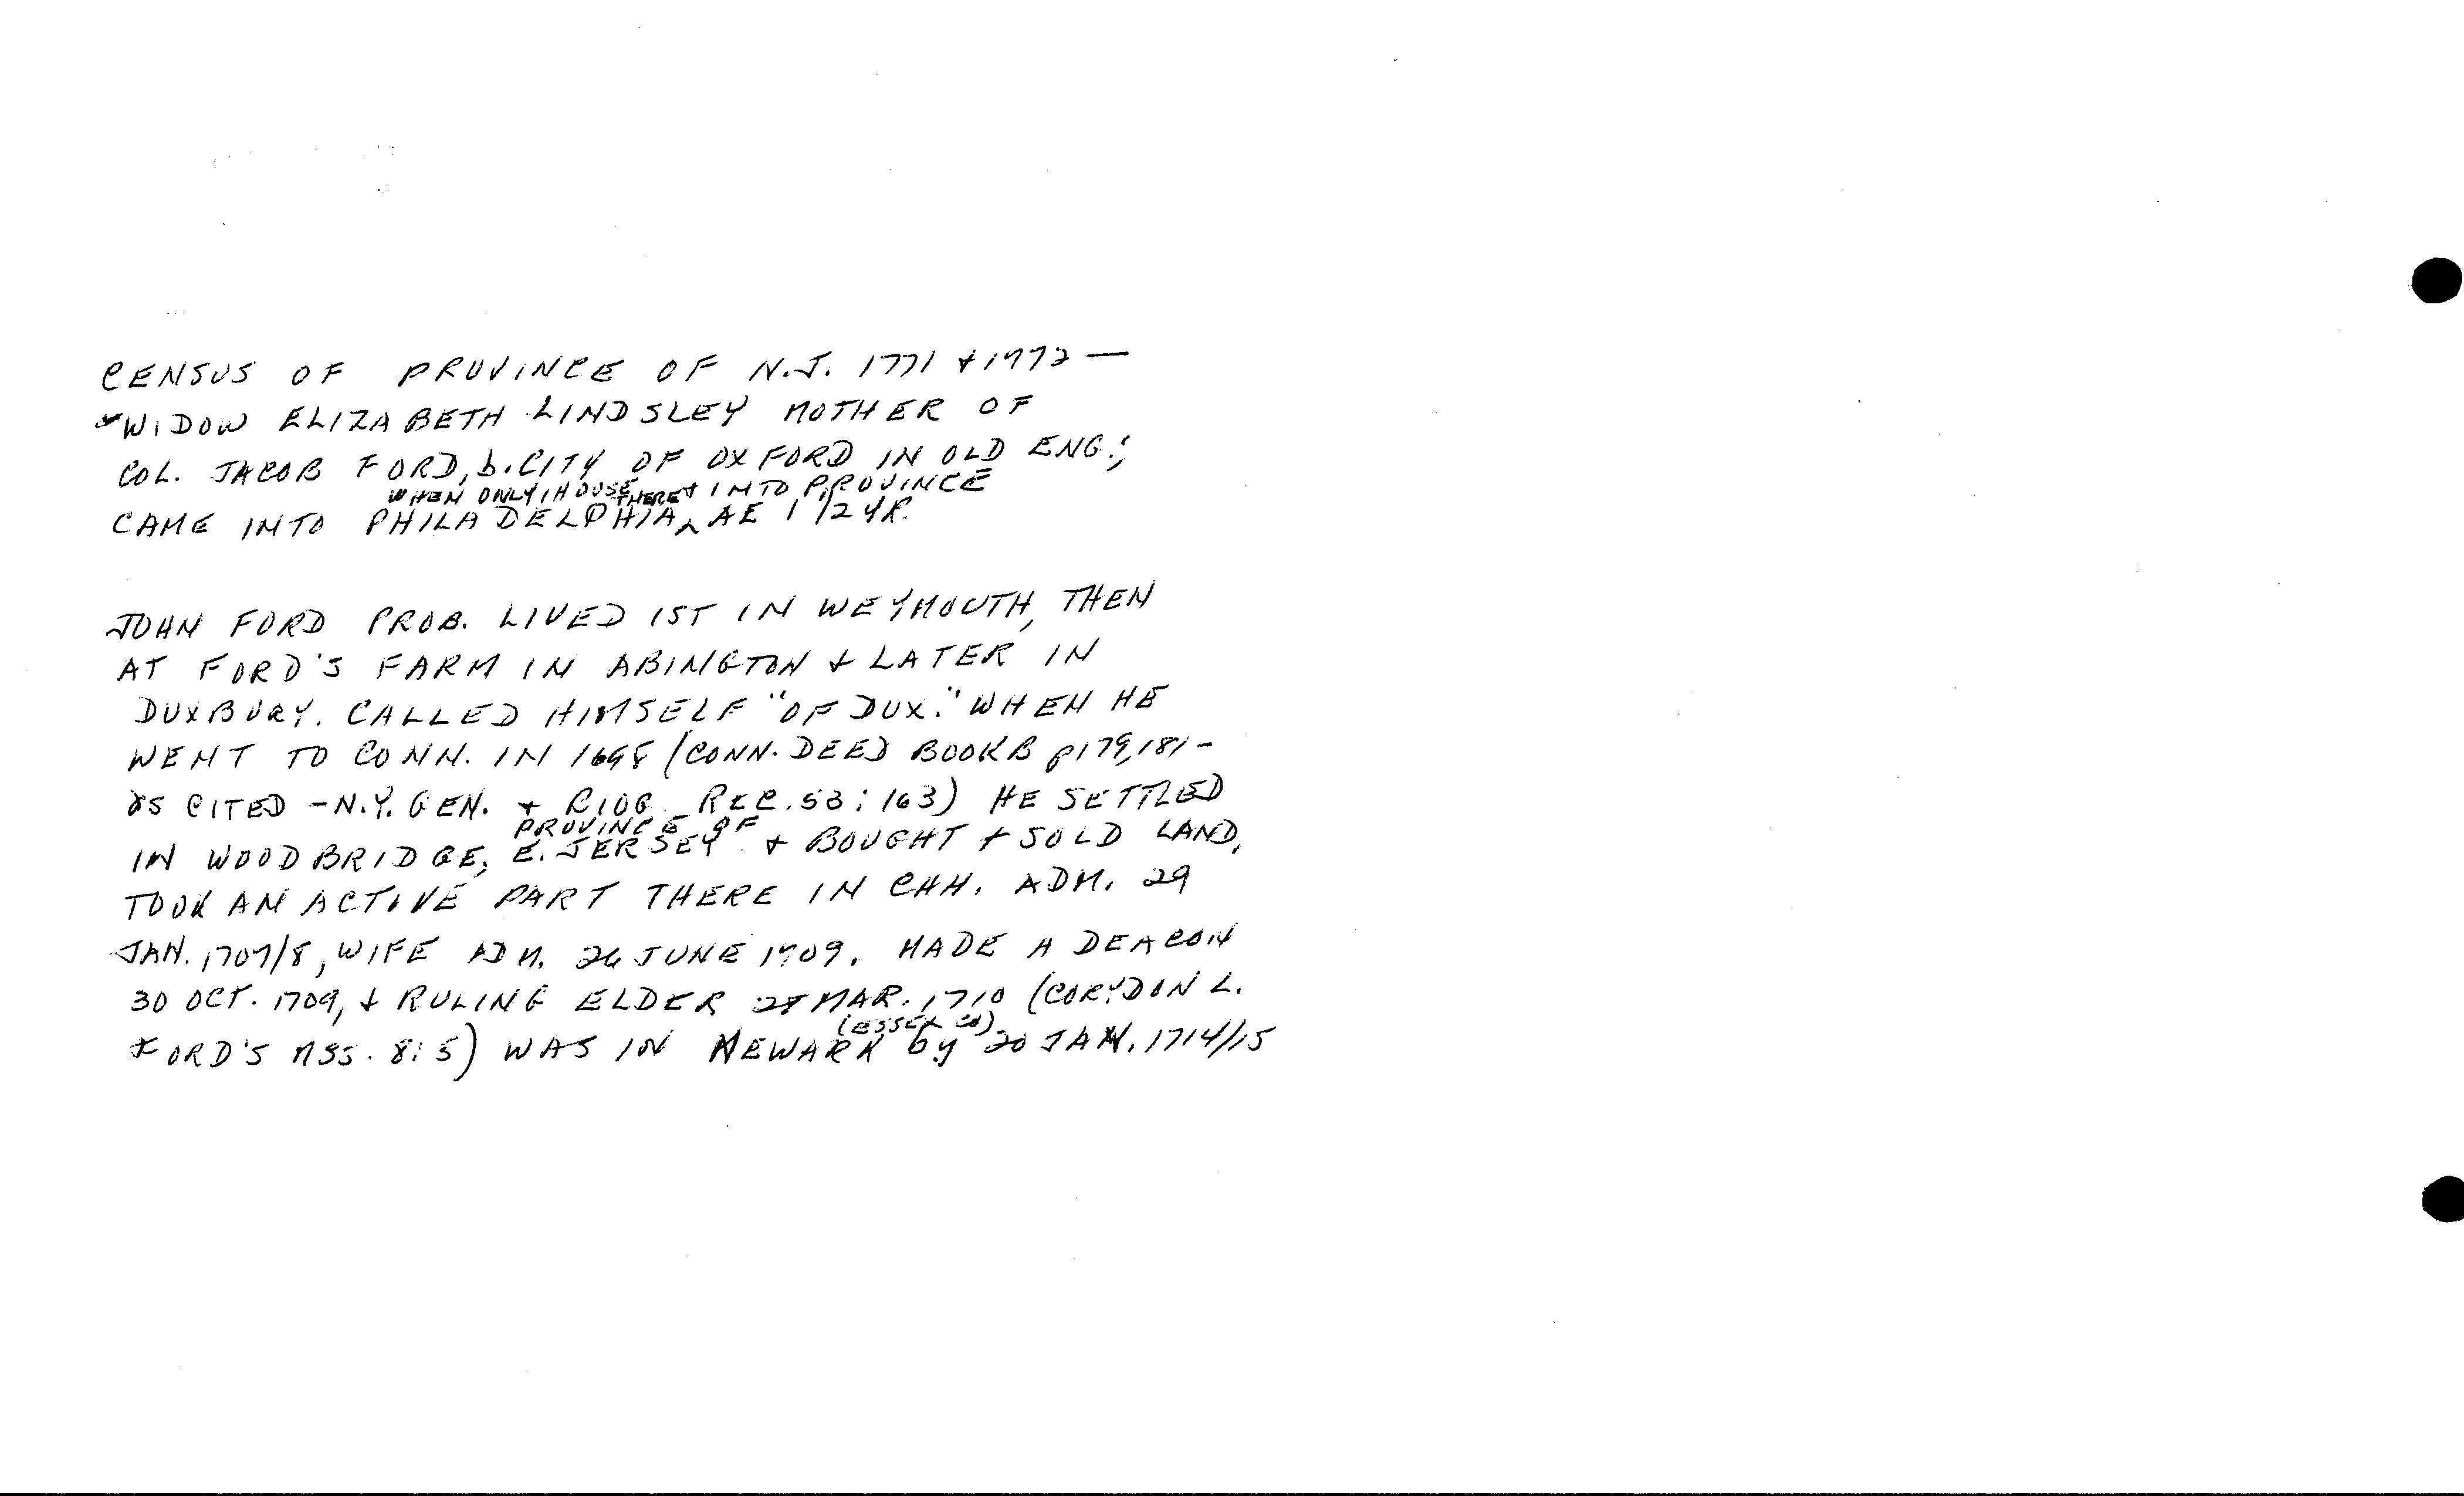 CENSUS OF PROVINCE OF N.J. 1771 + 1772 —
"WIDOW ELIZABETH LINDSLEY MOTHER OF
COL. JACOB FORD, b. CITY OF OXFORD IN OLD ENG.;
WHEN ONLY 1 HOUSE THERE + INTO PROVINCE
CAME INTO PHILADELPHIA, AE 1 1/2 YR.
JOHN FORD PROB. LIVED 1ST IN WEYMOUTH, THEN
AT FORD'S FARM IN ABINGTON + LATER IN
DUXBURY. CALLED HIMSELF "OF DUX." WHEN HE
WENT TO CONN. IN 1698 (CONN. DEED BOOK B p179,181-
as CITED - N.Y. GEN. + BIOG. REC. 53:163) HE SETTLED
PROVINCE OF
IN WOODBRIDGE, E. JERSEY + BOUGHT + SOLD LAND,
TOOK AN ACTIVE PART THERE IN CHH. ADM. 29
JAN. 1707/8, WIFE ADM. 26 JUNE 1709. MADE A DEACON
30 OCT. 1709, + RULING ELDER 28 MAR. 1710 (CORYDON L.
(ESSEX CO)
FORD'S MSS. 8:5) WAS IN NEWARK by 20 JAN. 1714/15